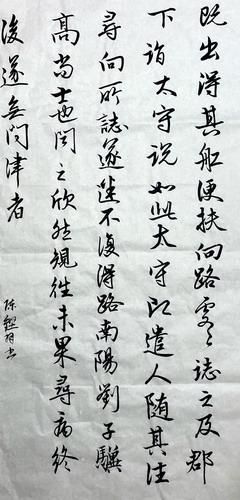 既出得其船便扶向路處處誌之及郡
下詣太守説如此太守即遣人随其往
尋向所誌遂迷不復得路南陽劉子驥
髙尚士也聞之欣然規往未果尋病終
後遂無问津者